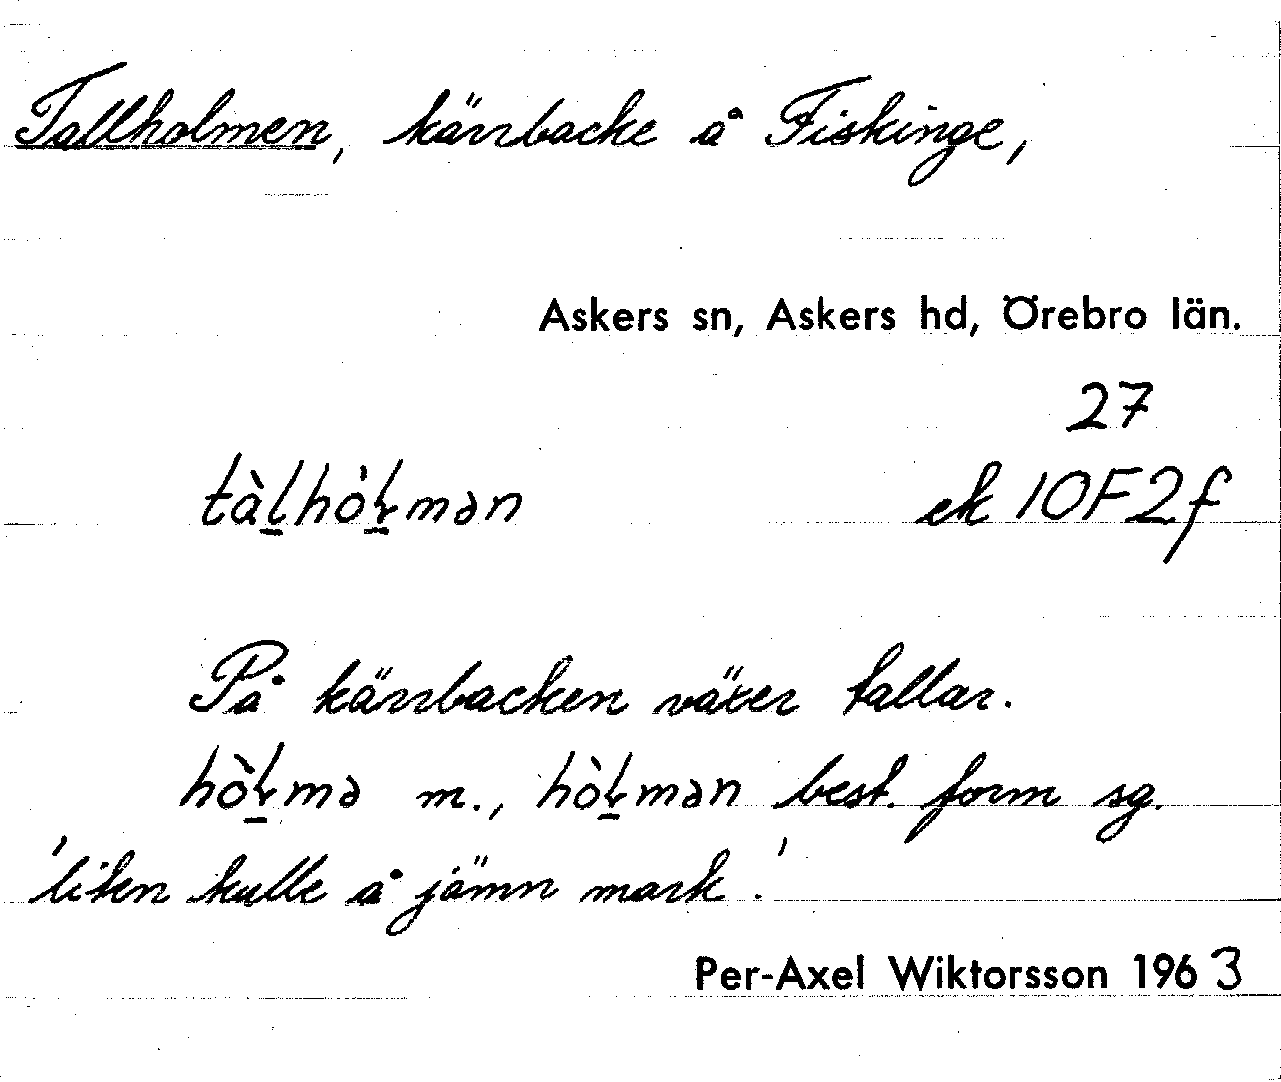 Tallholmen, kärrbacke å Fiskinge,
Askers sn, Askers hd, Örebro län.
27
tàl̠hò̀ɫ̠mən ek 10F2f
På kärrbacken växer tallar.
hòɫ̠mə m., hòɫ̠mən best. form sg.
'liten kulle å jämn mark.'
Per-Axel Wiktorsson 1963